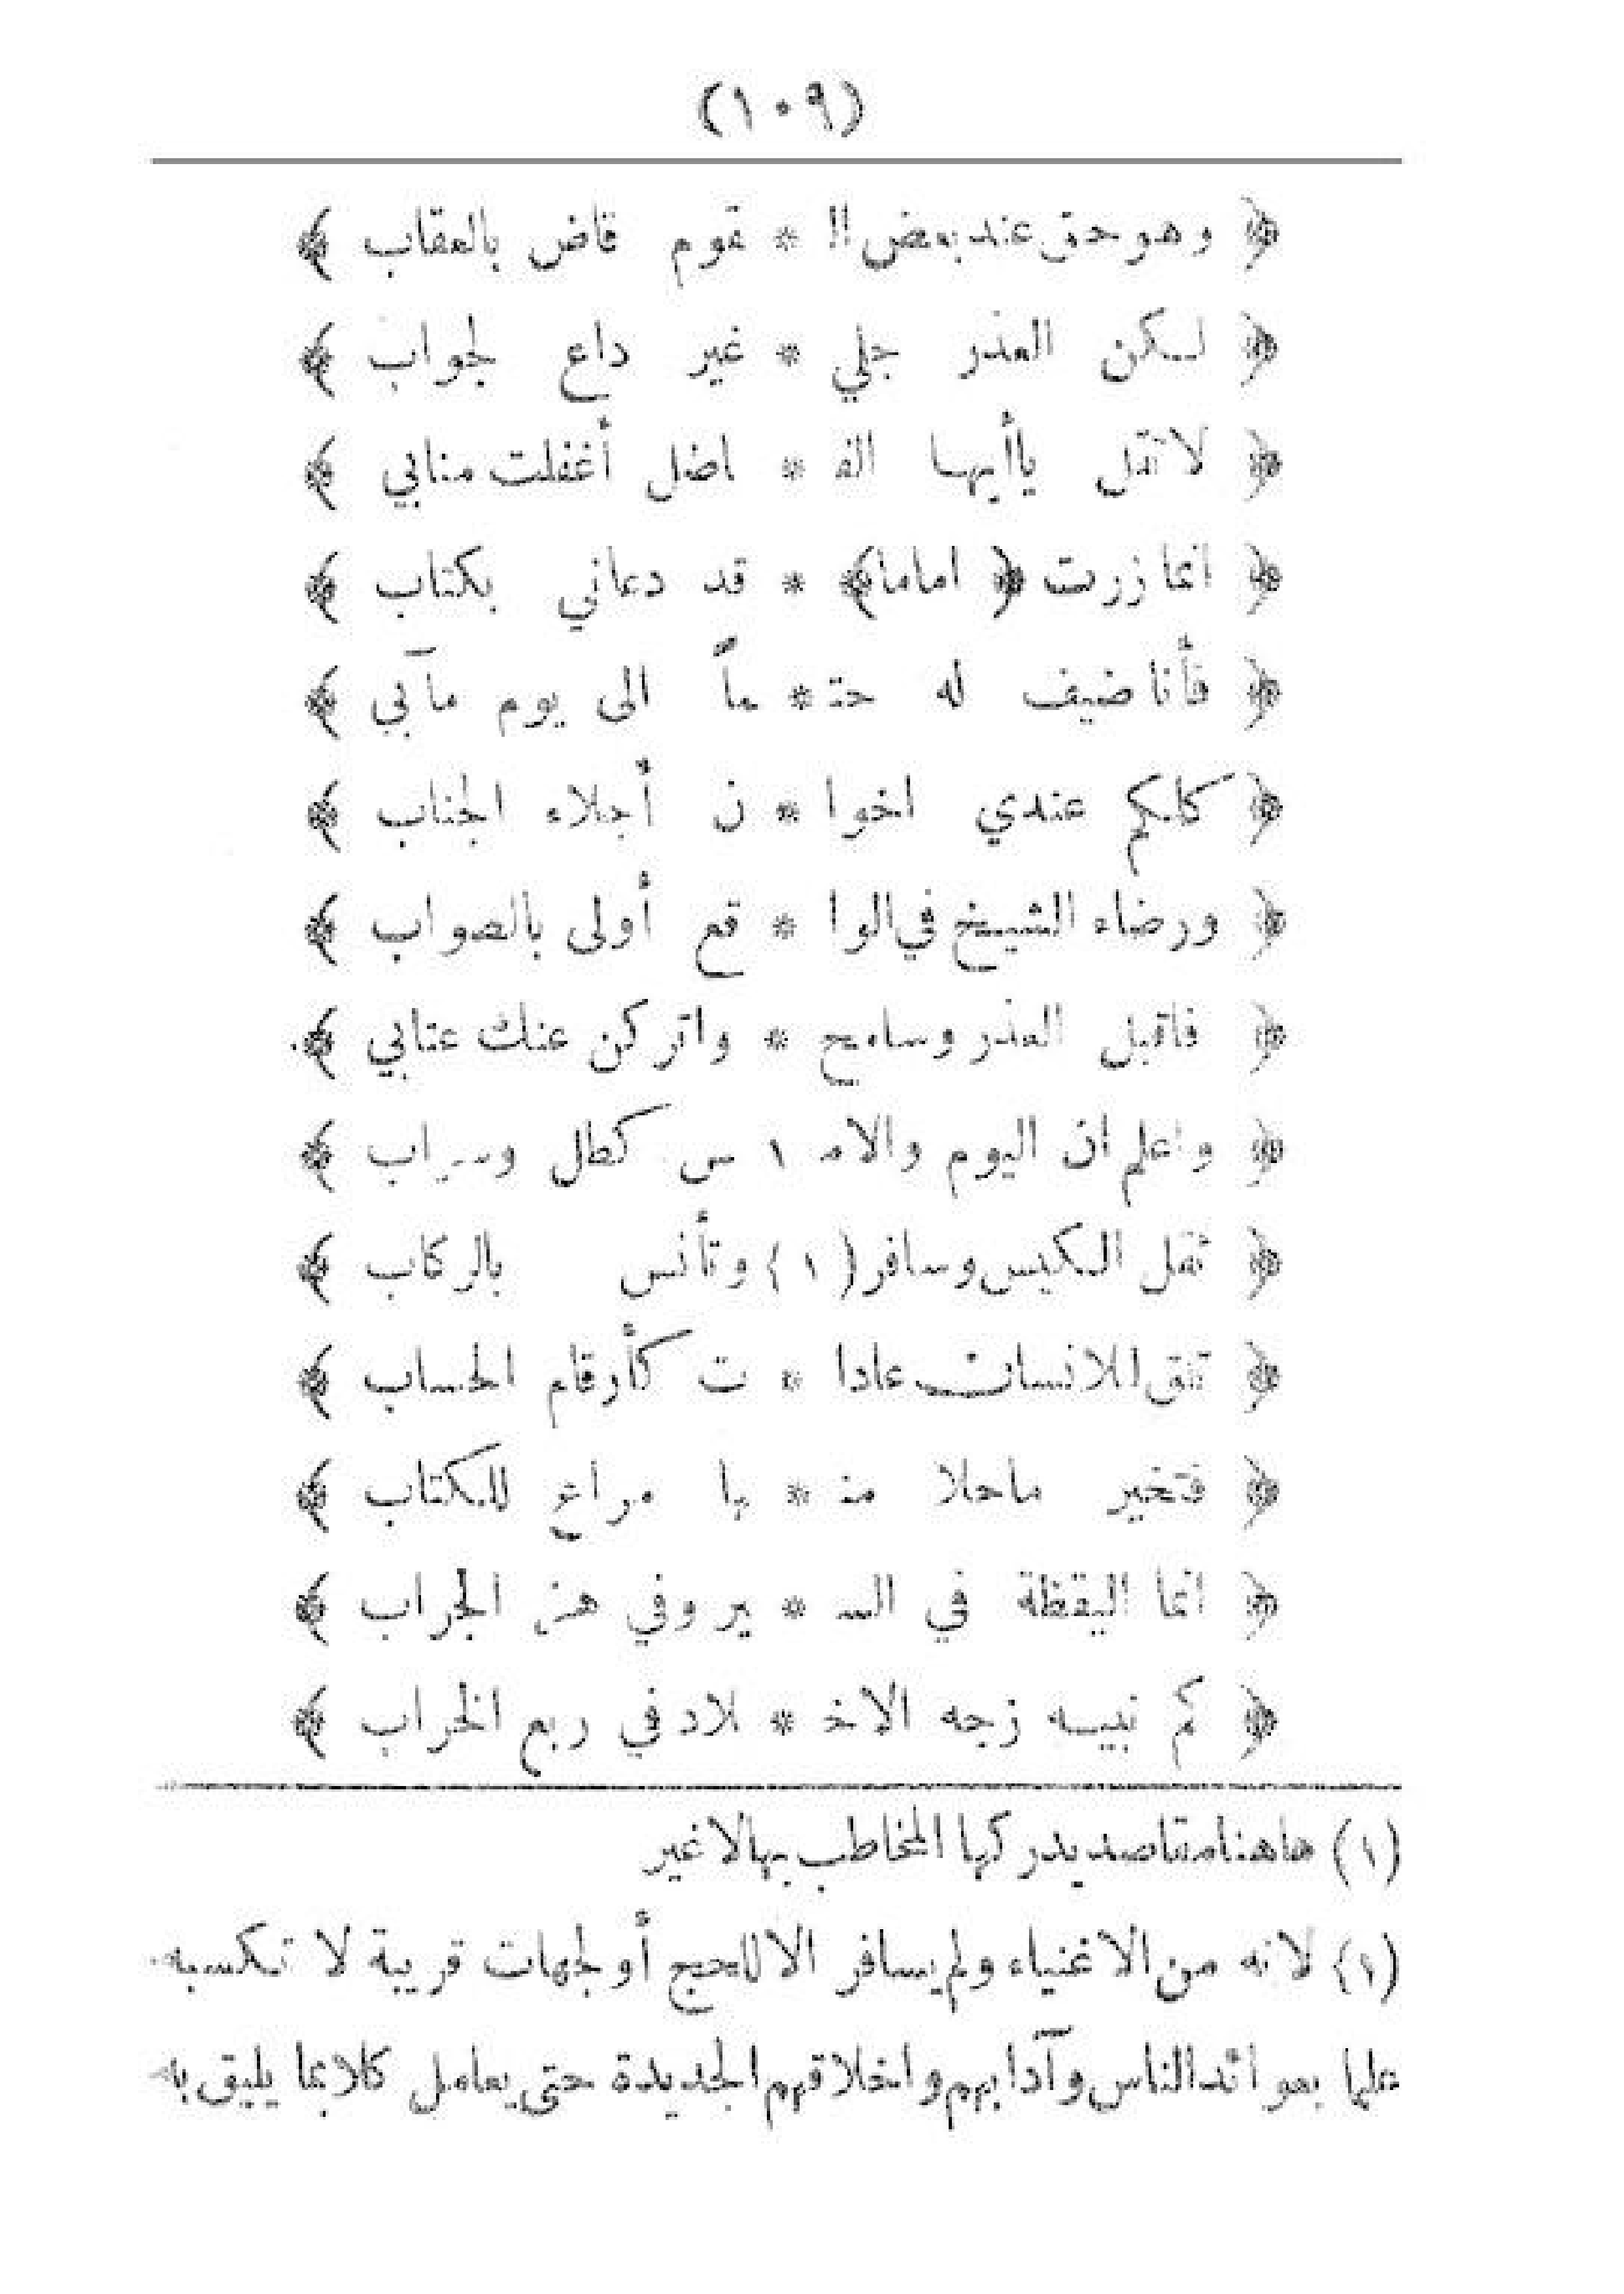 (١٠٩)
﴿ وهو حق عند بعض !! * قوم قاض بالعقاب ﴾
﴿ لكن العذر جلي * غير داع لجواب ﴾
﴿ لا تقل ياأيها الفـ * اضل أغفلت منابي ﴾
﴿ انما زرت ﴿ اماما ﴾ * قد دعاني بكتاب ﴾
﴿ فأنا ضيف له حتـ * ماً الى يوم مآبي ﴾
﴿ كلكم عندي اخوا * ن أجلاء الجناب ﴾
﴿ ورضاء الشيخ في الوا * قع أولى بالصواب ﴾
﴿ فاقبل العذر وسامح * واتركن عنك عتابي ﴾
﴿ واعلم ان اليوم والامـ ١ س كظل وسراب ﴾
﴿ ثقل الكيس وسافر (١) وتأنس بالركاب ﴾
﴿ تنق للانسان عادا * ت كأرقام الحساب ﴾
﴿ فتخير ماحلا منـ * ها مراع للكتاب ﴾
﴿ انما اليقظة في السـ * ير وفي هز الجراب ﴾
﴿ كم نبيه زجه الاخـ * لاد في ربع الخراب ﴾
(١) هاهنا مقاصد يدركها المخاطب بها لا غير
(١) لانه من الاغنياء ولم يسافر الا للحج أو لجهات قريبة لا تكسبه
علما بعوائد الناس وآدابهم واخلاقهم الجديدة حتى يعامل كلا بما يليق به